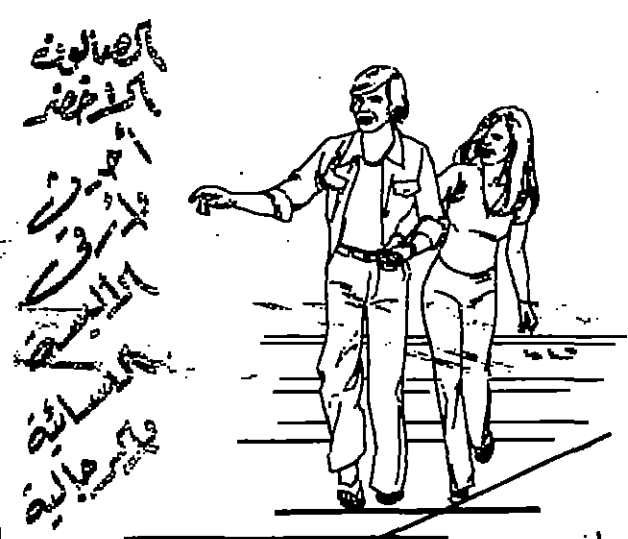 الصالون
الأخضر
أحدث
وأرقى
الألبسة
النسائية
والرجالية